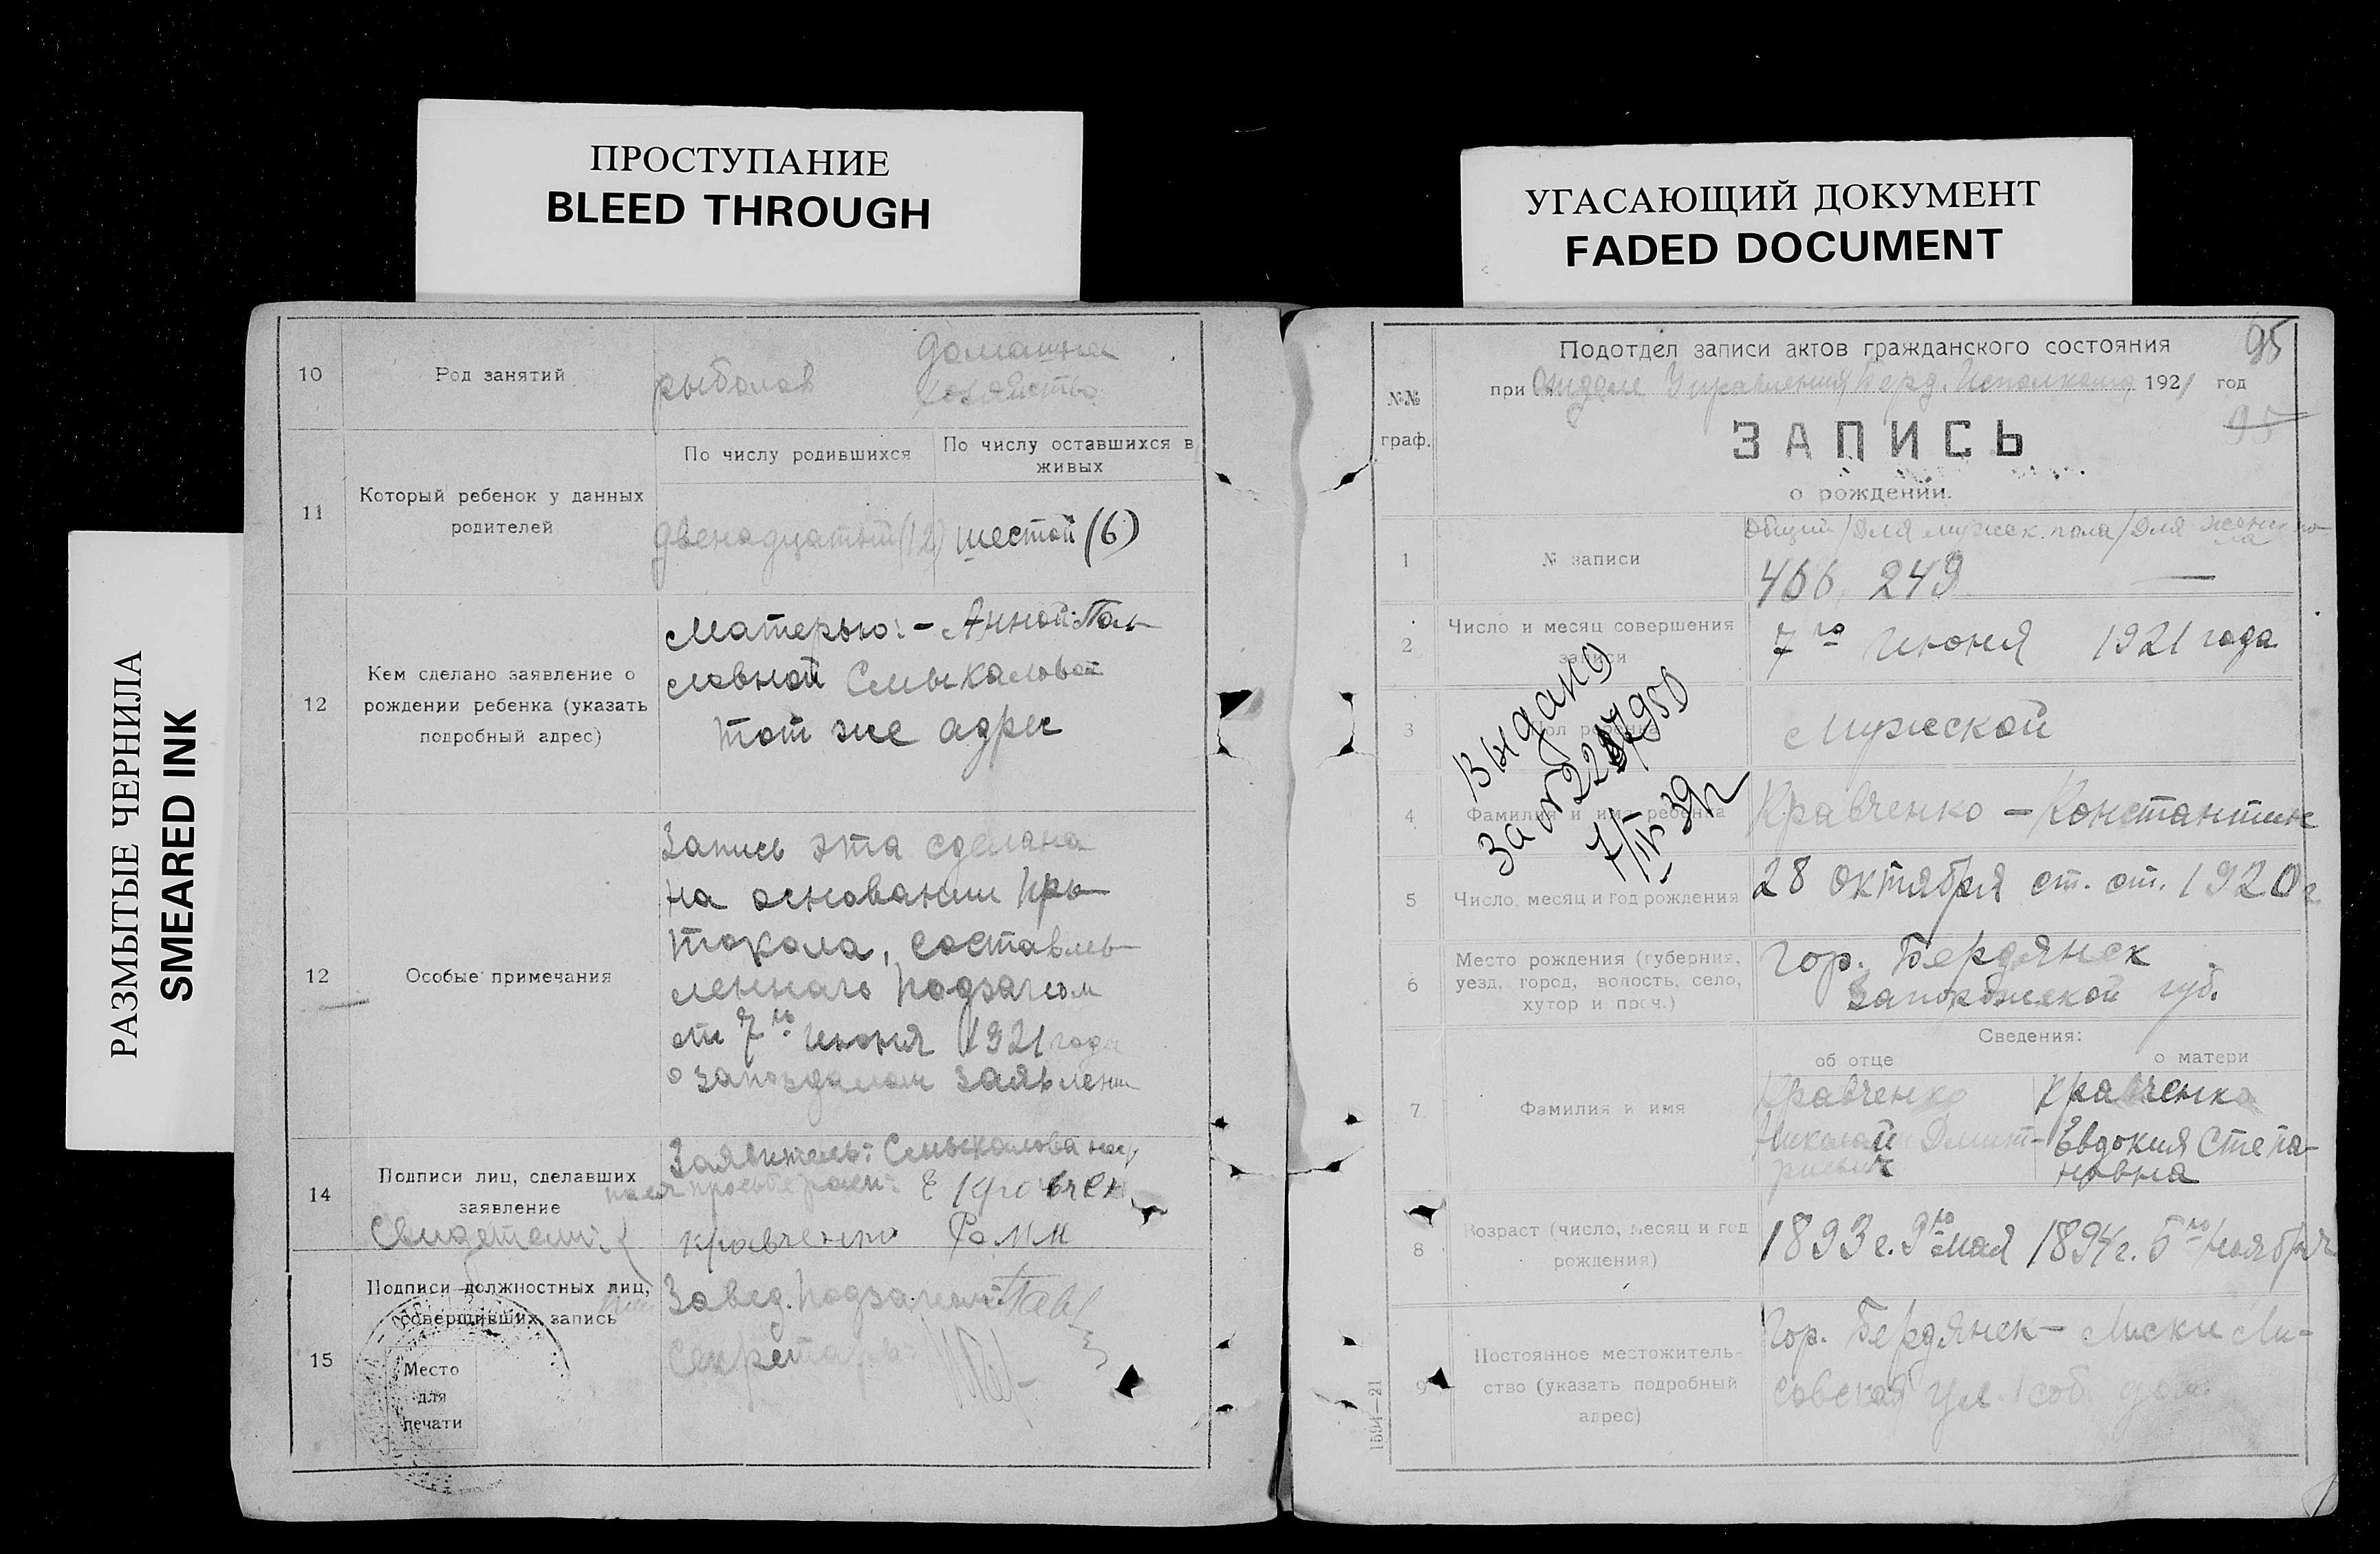 ПРОСТУПАНИЕ
BLEED THROUGH
УГАСАЮЩИЙ ДОКУМЕНТ
FADED DOCUMENT
РАЗМЫТЫЕ ЧЕРНИЛА
SMEARED INK
10
Род занятий
рыболов
домашнее
хозяйство
11
Который ребенок у данных
родителей
По числу родившихся
По числу оставшихся в
живых
двенадцатый (12)
шестой (6)
12
Кем сделано заявление о
рождении ребенка (указать
подробный адрес)
Матерью: - Анной Пав-
ловной Смыкаловой
тот же адрес
12
Особые примечания
Запись эта сделана
на основании про-
токола, составлен-
ленного Подзагсом
от 7го июня 1921 года
о запоздалом заявлении
14
Подписи лиц, сделавших
заявление
Свидетели:
Заявитель: Смыкалова
Кравченко
15
Подписи должностных лиц,
совершивших запись
Место
для
печати
Завед. Подзагсом:
Секретарь:
95
Подотдел записи актов гражданского состояния
при Отделе Управления Берд. Исполкома 1921 год
95
№№
граф.
ЗАПИСЬ
о рождении.
1
№ записи
Общий / для мужск. пола / для женск. по-
ла
466 249 —
2
Число и месяц совершения
записи
7го июня 1921 года
3
Пол ребенка
Мужской
4
Фамилия и имя ребенка
Кравченко - Константин
Выдано
7/IV 39 г
5
Число, месяц и год рождения
28 октября ст. ст. 1920 г
6
Место рождения (губерния,
уезд, город, волость, село,
хутор и проч.)
Гор. Бердянск
Запорожской губ.
Сведения:
об отце
о матери
7
Фамилия и имя
Кравченко
Николай Дмит-
риевич
Кравченко
Евдокия Степа-
новна
8
Возраст (число, месяц и год
рождения)
1893 г. 9го мая
1894 г. 5го ноября
9
Постоянное местожитель-
ство (указать подробный
адрес)
Гор. Бердянск - Лиски Ли-
совская ул. соб. дом
1594—21